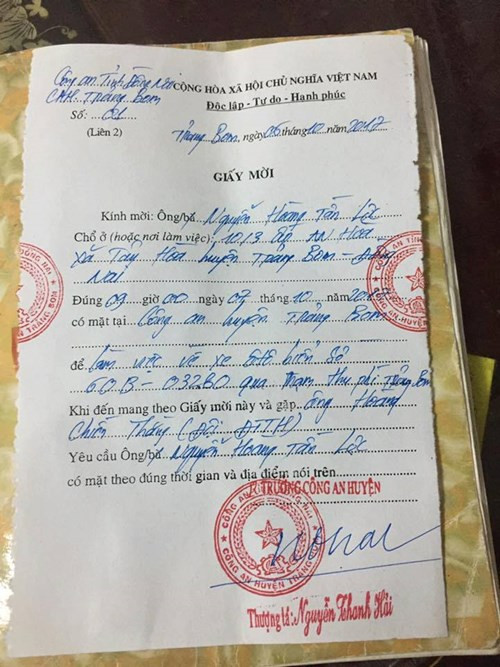 Công an Tỉnh Đồng Nai
CỘNG HÒA XÃ HỘI CHỦ NGHĨA VIỆT NAM
CAH. Trảng Bom
Độc lập - Tự do - Hạnh phúc
Số: 01
(Liên 2)
Trảng Bom, ngày 06 tháng 10 năm 2017
GIẤY MỜI
Kính mời: Ông/bà Nguyễn Hoàng Tấn Lộc
Chỗ ở (hoặc nơi làm việc): 10/3 ấp AN Hòa
Xã Tây Hòa huyện Trảng Bom - Đồng
Nai
Đúng 09 giờ 00 ngày 07 tháng 10 năm 2017
có mặt tại Công an huyện Trảng Bom
để làm việc về xe ôtô biển số
60B-03280 qua trạm thu phí Trảng Bom
Khi đến mang theo Giấy mời này và gặp ông Hoàng
Chiến Thắng (Đội ĐTTH)
Yêu cầu Ông/bà Nguyễn Hoàng Tấn Lộc
có mặt theo đúng thời gian và địa điểm nói trên
TRƯỞNG CÔNG AN HUYỆN
CÔNG AN HUYỆN TRẢNG BOM
Thượng tá: Nguyễn Thanh Hải